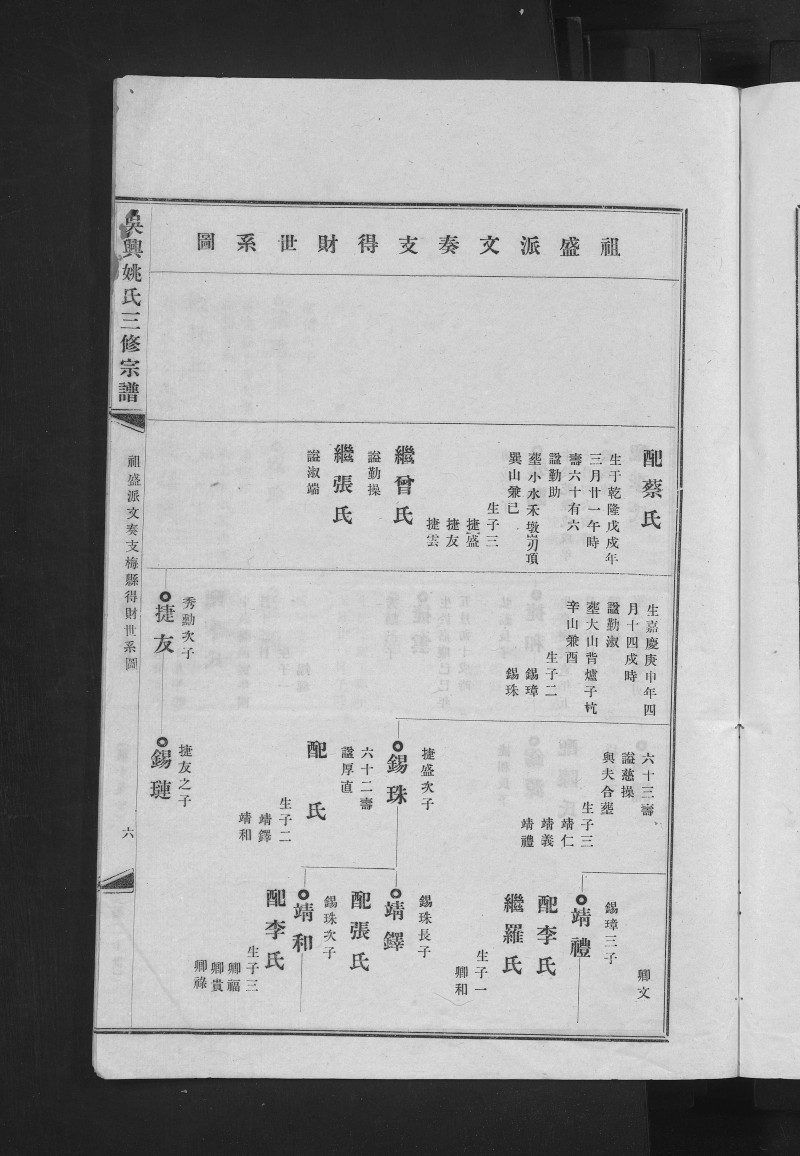 祖盛派文奏支得財世系圖
配蔡氏
生于乾隆戊戌年
三月廿一午時
壽六十有六
諡勤助
塟小水禾墩崀項
巽山兼巳
生子三
捷盛
捷友
捷雲
繼曾氏
諡勤操
繼張氏
諡淑端
生嘉慶庚申年四
月十四戌時
諡勤淑
塟大山背爐子坑
辛山兼酉
生子二
錫璋
錫珠
秀勳次子
捷友
六十三壽
諡慈操
與夫合塟
生子三
靖仁
靖義
靖禮
捷盛次子
錫珠
六十二壽
諡厚直
配 氏
生子二
靖鐸
靖和
捷友之子
錫璉
卿文
錫璋三子
靖禮
配李氏
繼羅氏
生子一
卿和
錫珠長子
靖鐸
配張氏
錫珠次子
靖和
配李氏
生子三
卿福
卿貴
卿祿
吳興姚氏三修宗譜
祖盛派文奏支梅縣得財世系圖
六